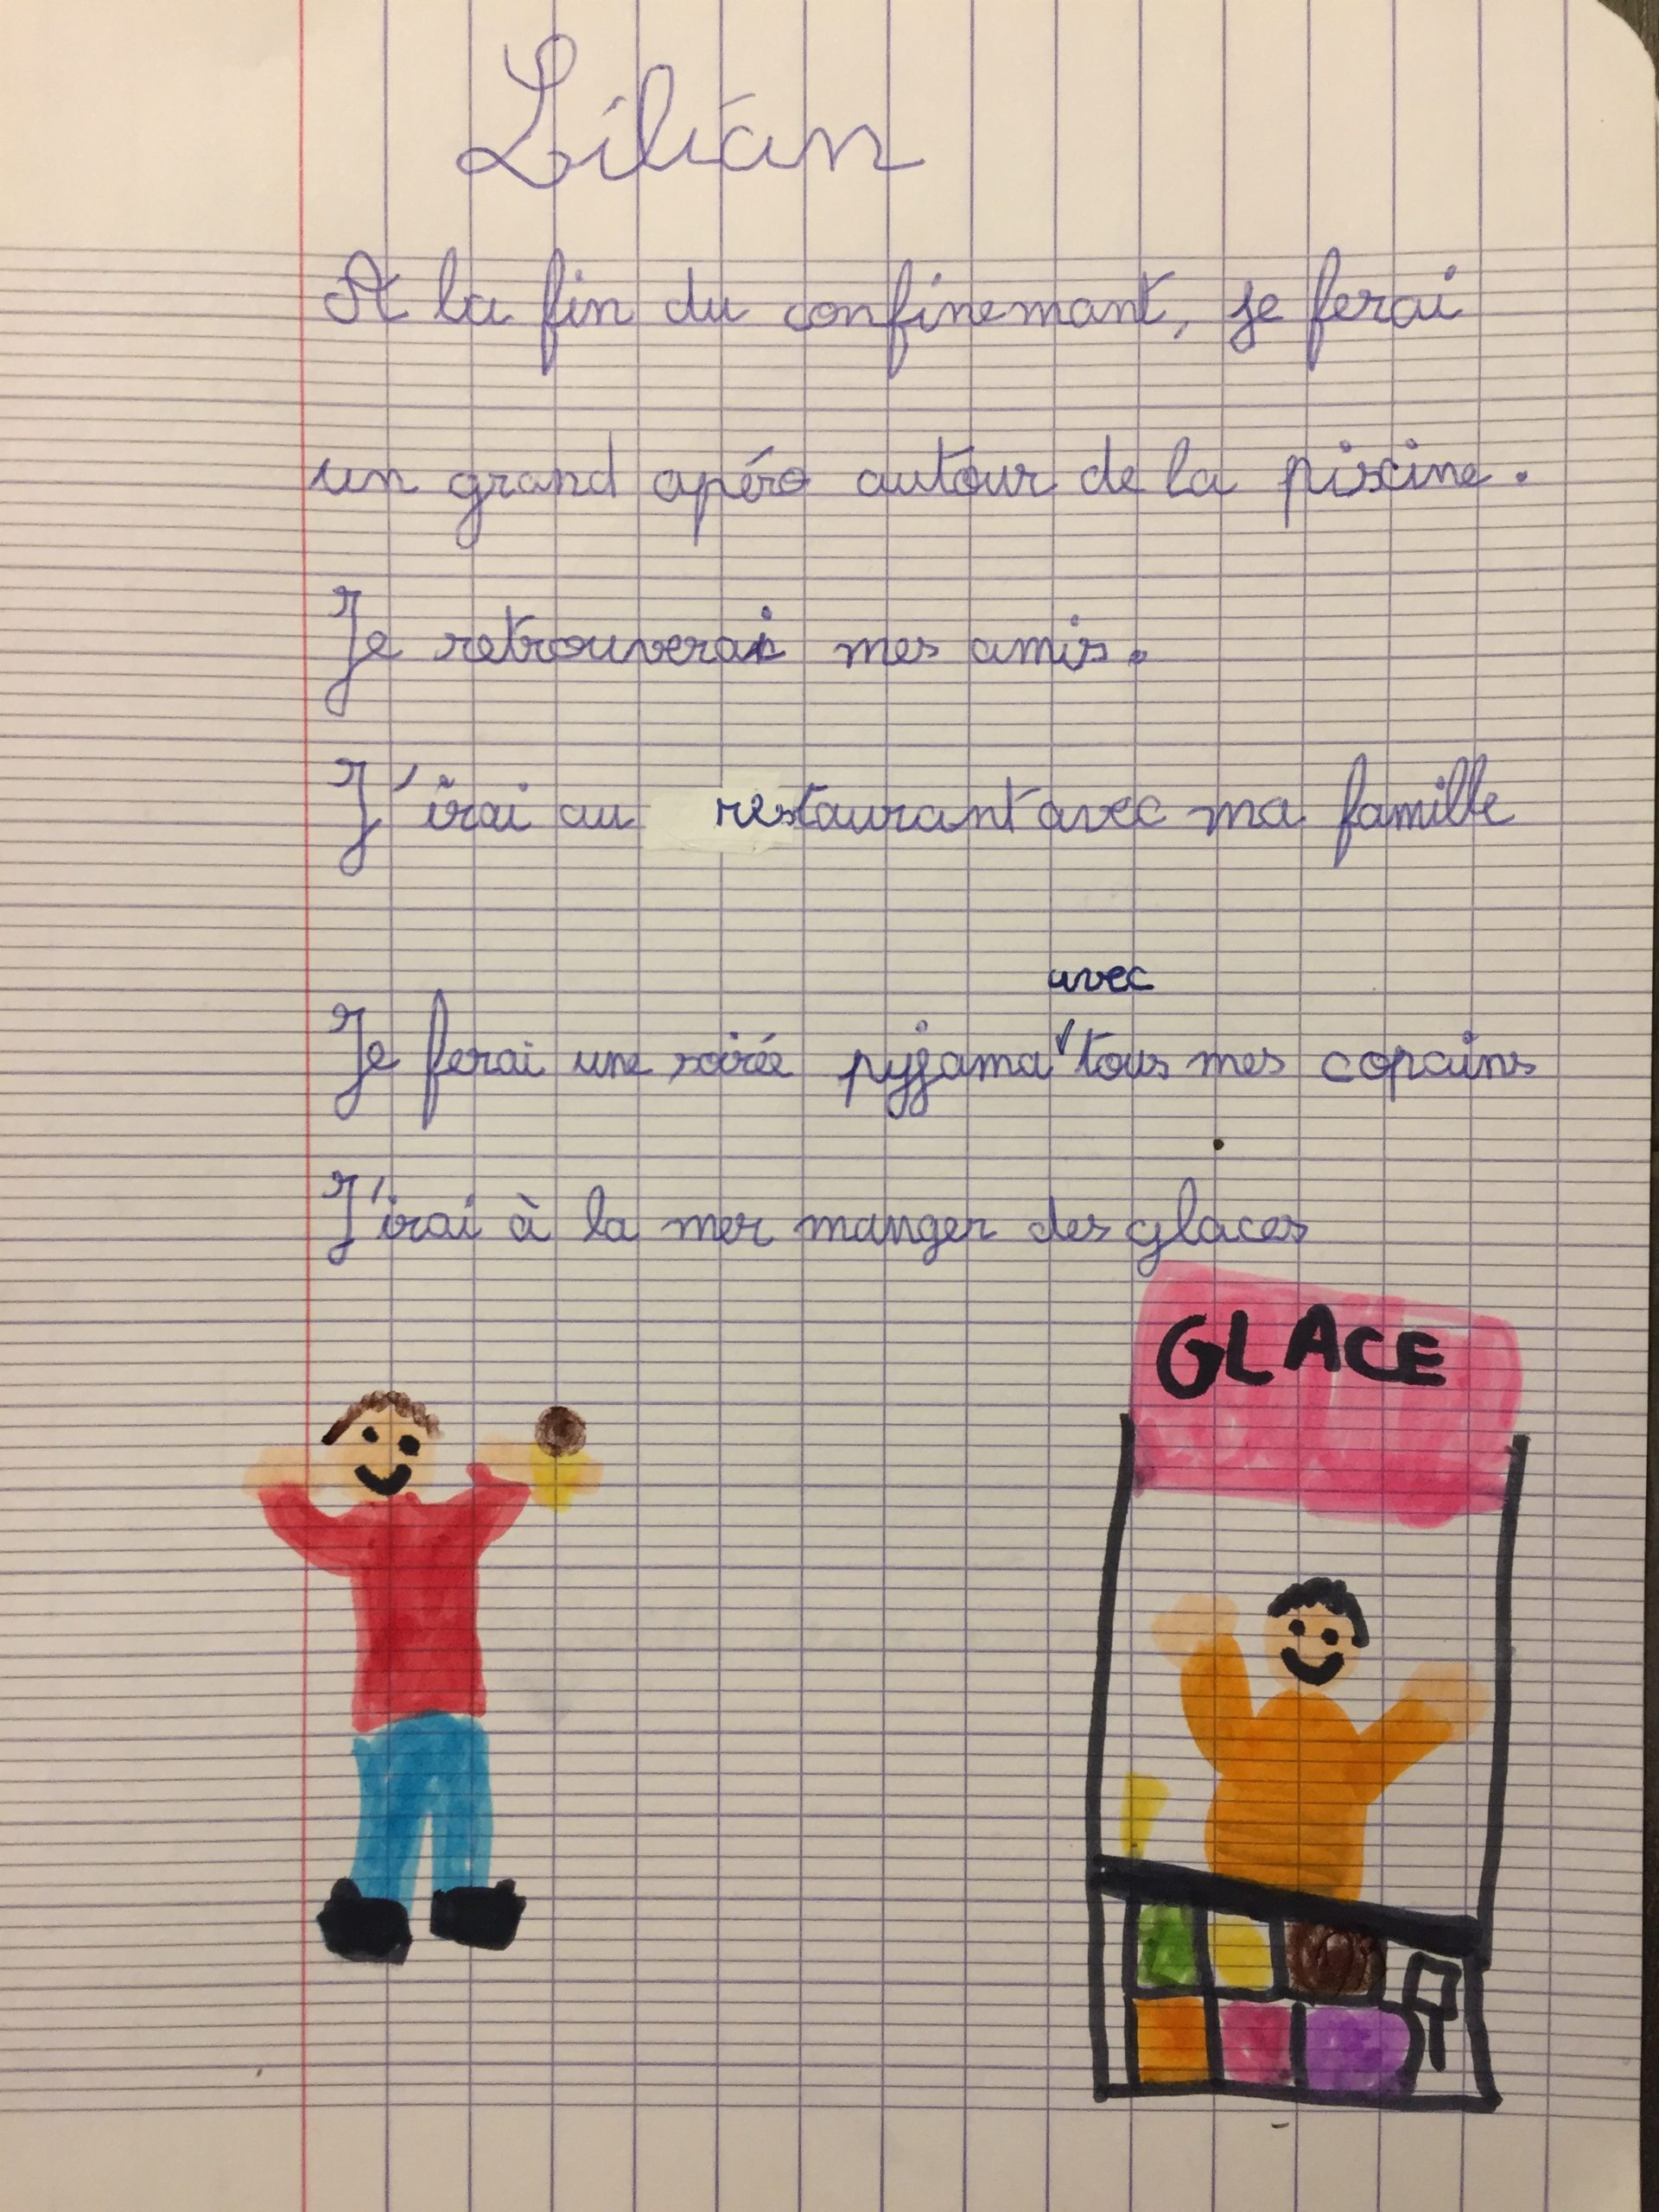 Lilian
A la fin du confinemant, je ferai
un grand apéro autour de la piscine.
Je retrouverai mes amis.
J'irai au restaurant avec ma famille
avec
Je ferai une soirée pyjama tous mes copains
J'irai à la mer manger des glaces
GLACE